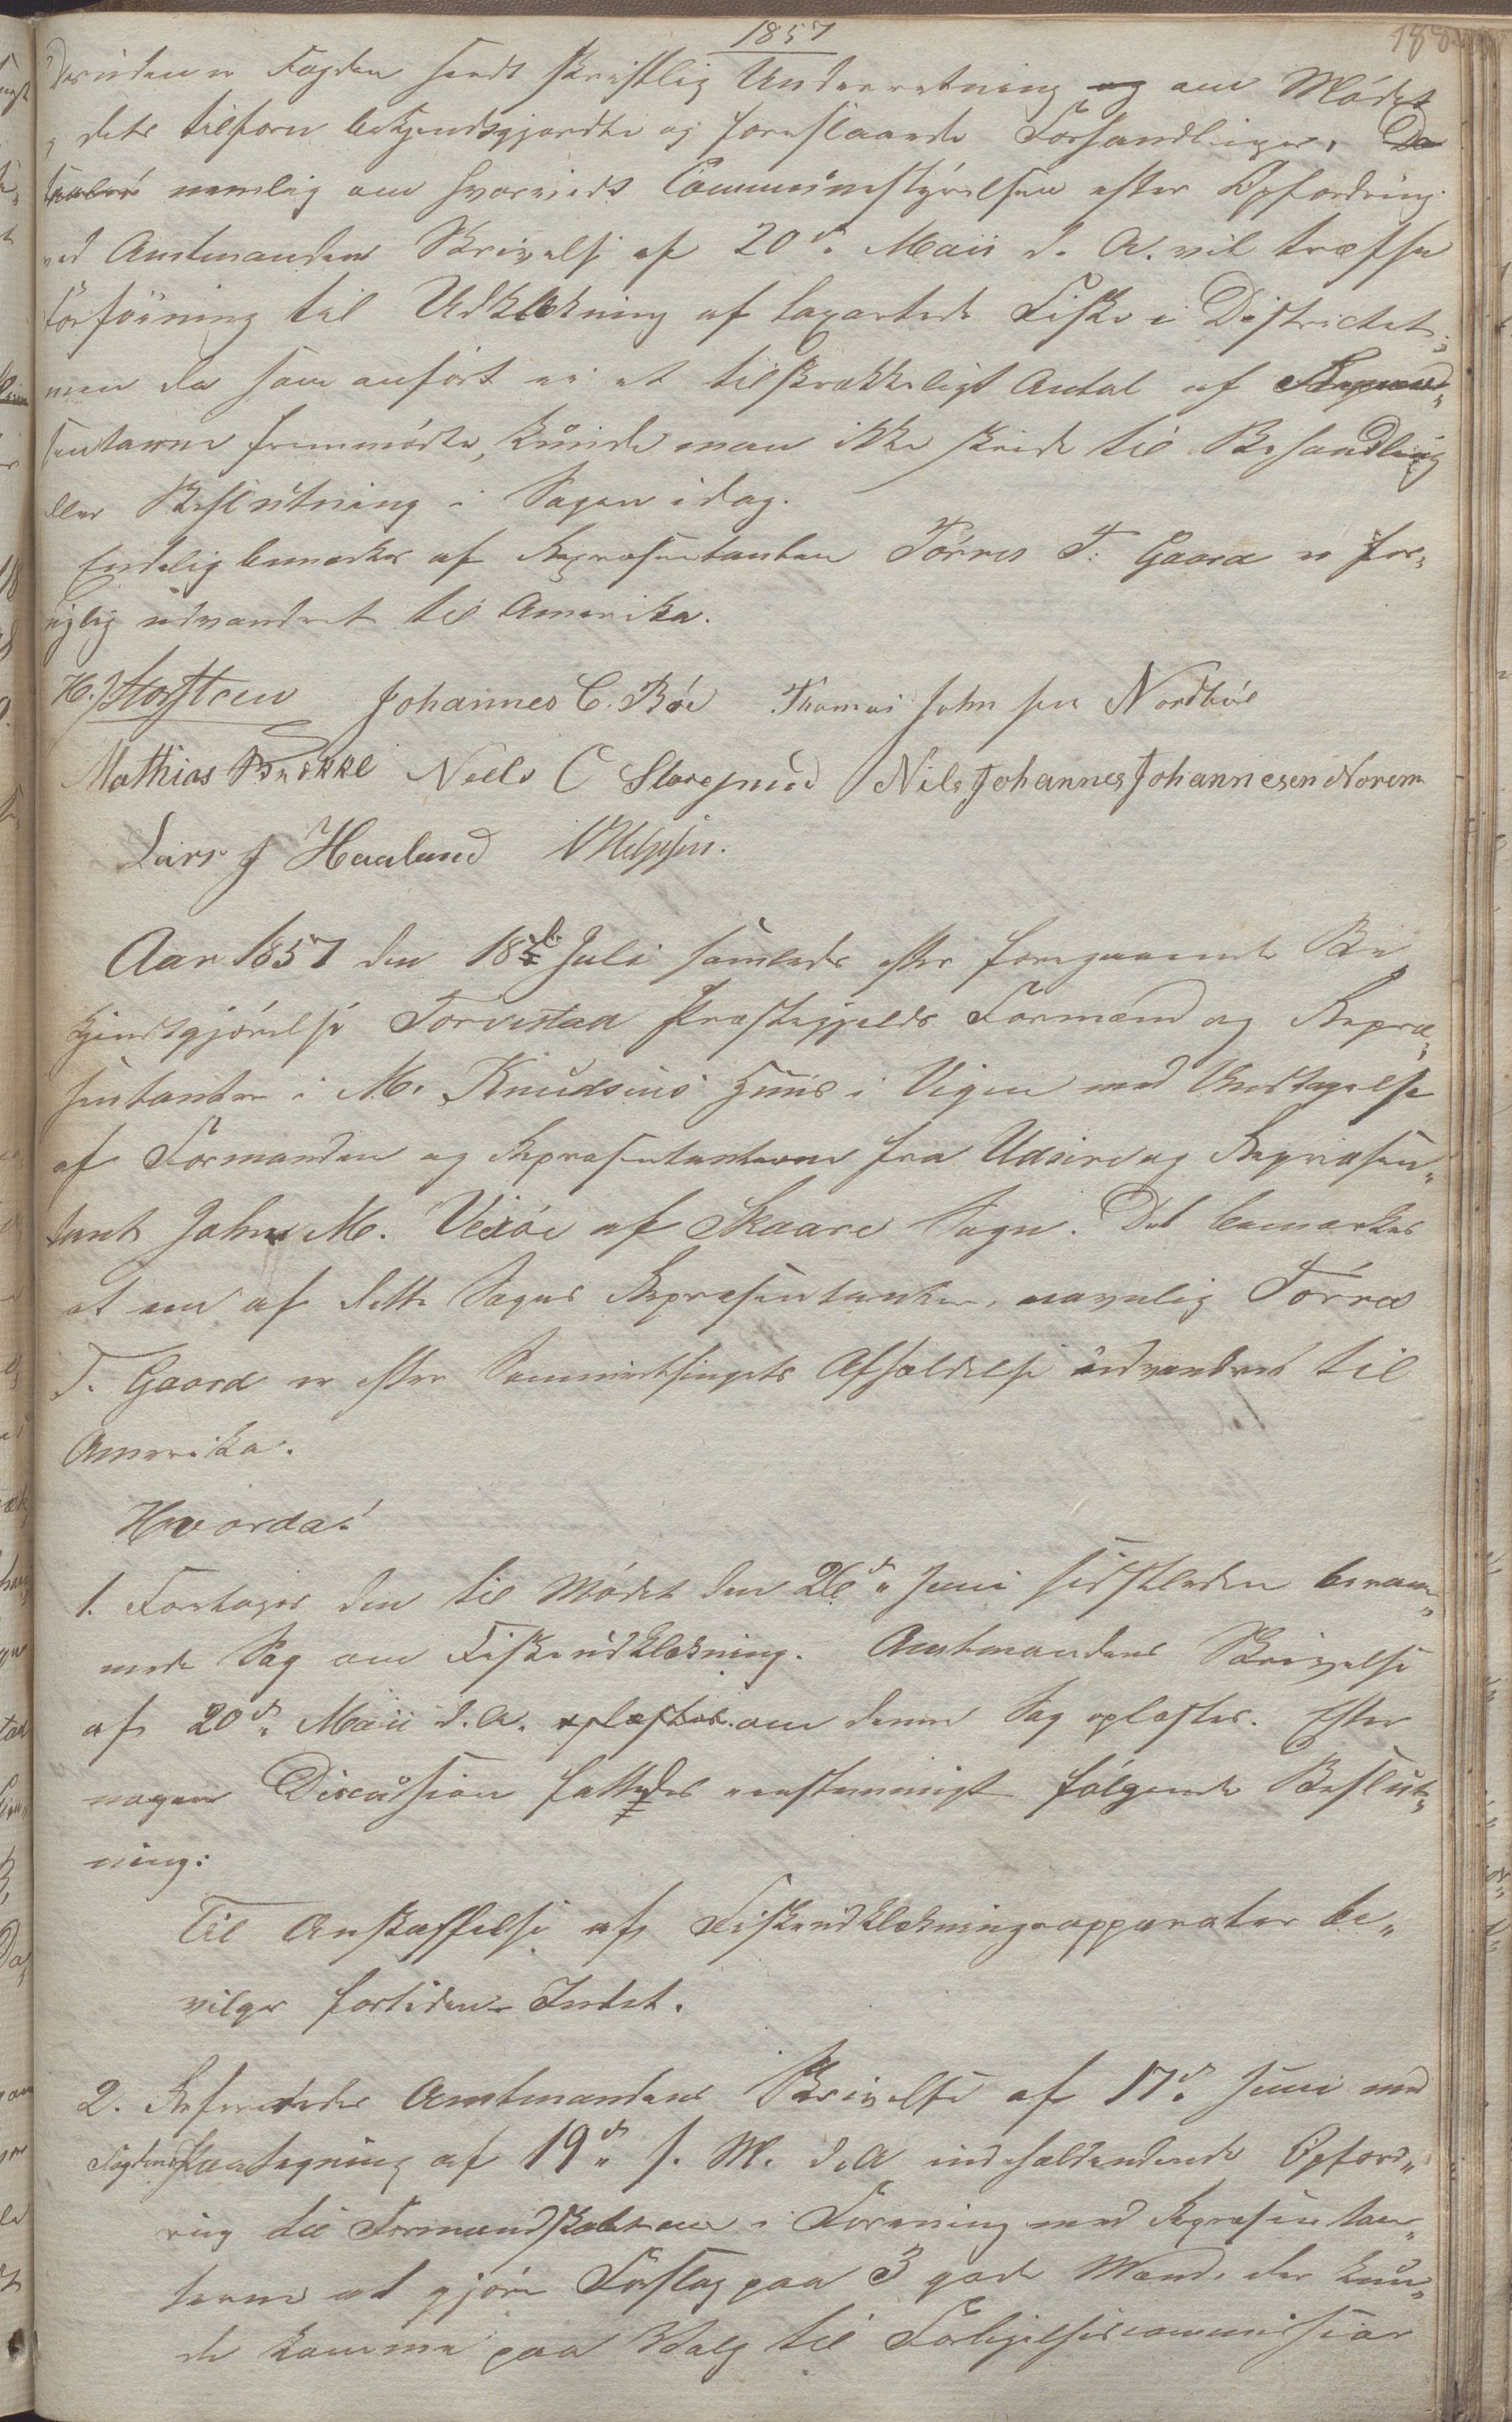 1857
188
Desuden er Fogden sendt skriftlig Underretning og om Mødet
dets tilforn bekjendtgjordte og forestaaende Forhandlinger, Da
nemlig om hvorvidt Communestyrelsen efter Opfordring
ved Amtmandens Skrivelse af 20de Maii d. A. vil træffe
Forføining til Udklækning af laxartede Fiske i Districtet;
men da som anført ei et tilstrækkeligt Antal af Repræ„
sentanterne fremmødte, kunde man ikke skride til Behandling
eller Beslutning i Sagen idag.
Endelig bemærkes af Repræsentanten Tórres T. Gaard er for„
nylig udvandret til Amerika.
H. J. Storsteen Johannes C. Bøe Thomas Johnsen Nordbøe
Mathias Brekke Niels C Storesund Nils Johannes Johannesen Norem
Lars J Haaland
Aar 1857 den 18de Juli samledes efter foregaaende Be„
kjendtgjørelse Torvestad Præstegjelds Formænd og Repræ„
sentanter i M. Knudsens Huus i Vigen med Undtagelse
af Formanden og Repræsentanterne fra Udsire og Repræsen„
tant John M. Vexøe af Skaare Sogn. Det bemærkes
at een af dette Sogns Repræsentanter, navnlig Tórres
T. Gaard er efter Sommertingets Afholdelse udvandret til
Amerika.
Hvorda:
1. Foretoges den til Mødet den 26de Juni sidstleden beram„
mede Sag om Fiskeudklækning. Amtmandens Skrivelse
af 20de Maii d. A. oplæstes om denne Sag oplæstes. Efter
nogen Discussion fattedes eenstemmigt følgende Beslut„
ning:
Til Anskaffelse af Fiskeudklækningsapparater be„
vilges fortiden Intet.
2. Refereredes Amtmandens Skrivelse af 17de Juni med
Fogdens Paategning af 19de s. M. d. A indeholdendende Opford„
ring til Formandskabet om i Forening med Repræsentan„
terne at gjøre Forslag paa 3 gode Mænd, der kun„
de komme paa Valg til Forligelsescommissair